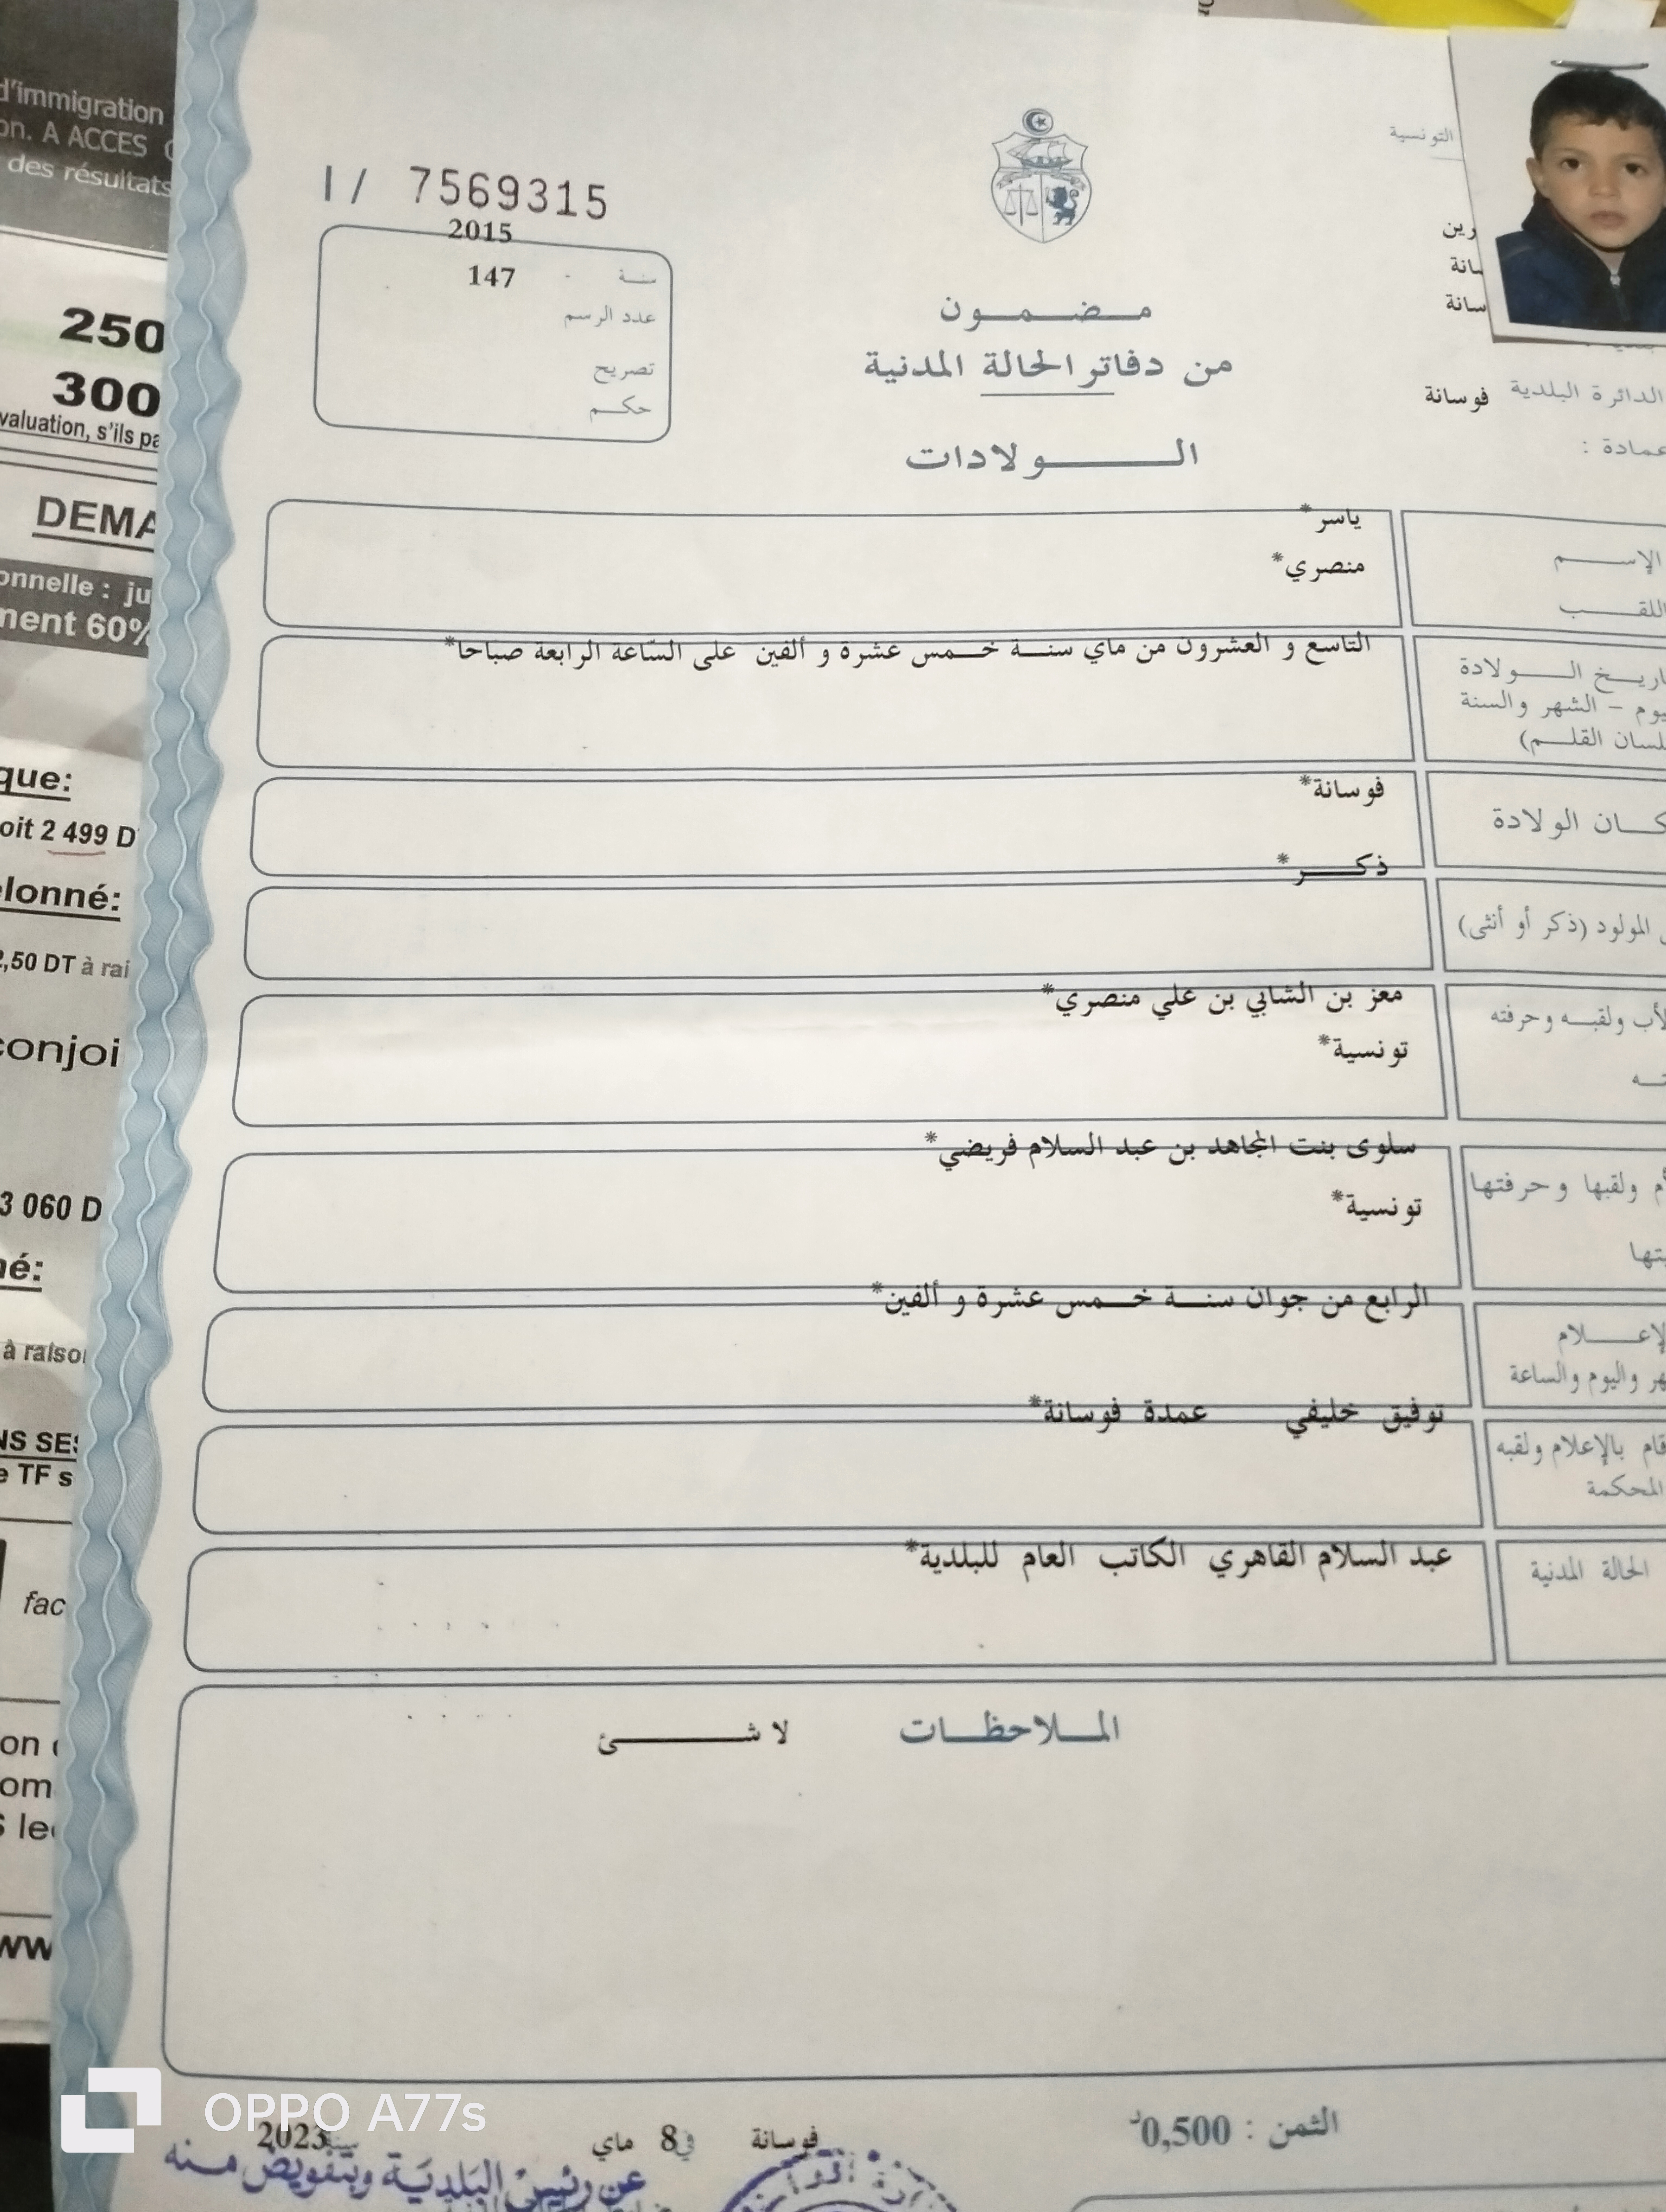 d'immigration
on. A ACCES
des résultats
250
300
valuation, s'ils pa
DEMA
onnelle : ju
ment 60%
que:
oit 2 499 D
lonné:
2,50 DT à rai
conjoi
3 060 D
né:
à raison
NS SES
e TF s
fac
on
om
S le
ww
I/ 7569315
2015
سنة
147
عدد الرسم
تصريح
حكم
مضمون
من دفاتر الحالة المدنية
الولادات
التونسية
رين
انة
سانة
الدائرة البلدية فوسانة
عمادة :
الإسم ياسر*
اللقب منصري*
اريخ الولادة التاسع و العشرون من ماي سنة خمس عشرة و ألفين على السّاعة الرابعة صباحا*
يوم - الشهر والسنة
لسان القلم)
كان الولادة فوسانة*
ذكر*
المولود (ذكر أو أنثى)
لأب ولقبه وحرفته معز بن الشابي بن علي منصري*
ته تونسية*
سلوى بنت المجاهد بن عبد السلام فريضي*
أم ولقبها وحرفتها
تونسية*
يتها
الرابع من جوان سنة خمس عشرة و ألفين*
لإعلام
هر واليوم والساعة
توفيق خليفي عمدة فوسانة*
قام بالإعلام ولقبه
المحكمة
عبد السلام القاهري الكاتب العام للبلدية*
الحالة المدنية
الملاحظات لا شئ
الثمن : 0,500د
فوسانة في 8 ماي سنة 2023
عن رئيس البلدية وبتفويض منه
OPPO A77s